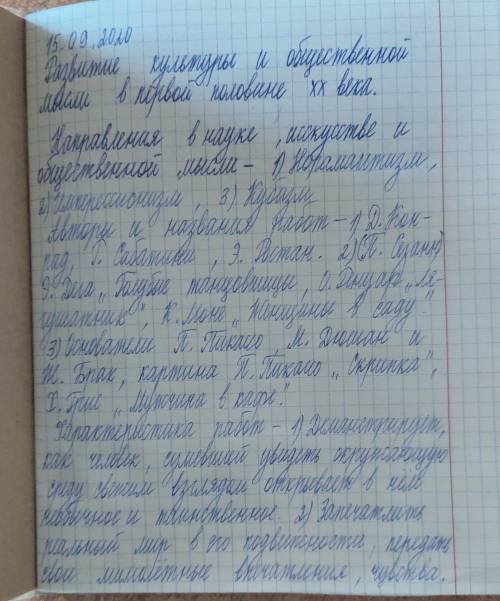 15.09.2020
Развитие культуры и общественной
мысли в первой половине XX века.
Направления в науке, искусстве и
общественной мысли – 1) Неоромантизм,
2) Импрессионизм, 3) Кубизм
Авторы и названия работ – 1) Д. Кон-
рад, Г. Сабатини, Э. Ростан. 2) (П. Сезанн)
Э. Дега „Голубые танцовщицы, О. Ренуар „Ля-
гушатник", К. Моне „Женщины в саду".
3) Основатели П. Пикассо, М. Дюшан и
Ж. Брак, картина П. Пикассо „Скрипка",
Х. Грис „Мужчина в кафе".
Характеристика работ – 1) Демонстрирует,
как человек, сумевший увидеть окружающую
среду свежим взглядом открывает в нём
необычное и таинственное. 2) Запечатлить
реальный мир в его подвижности, передать
свои мимолётные впечатления, чувства.